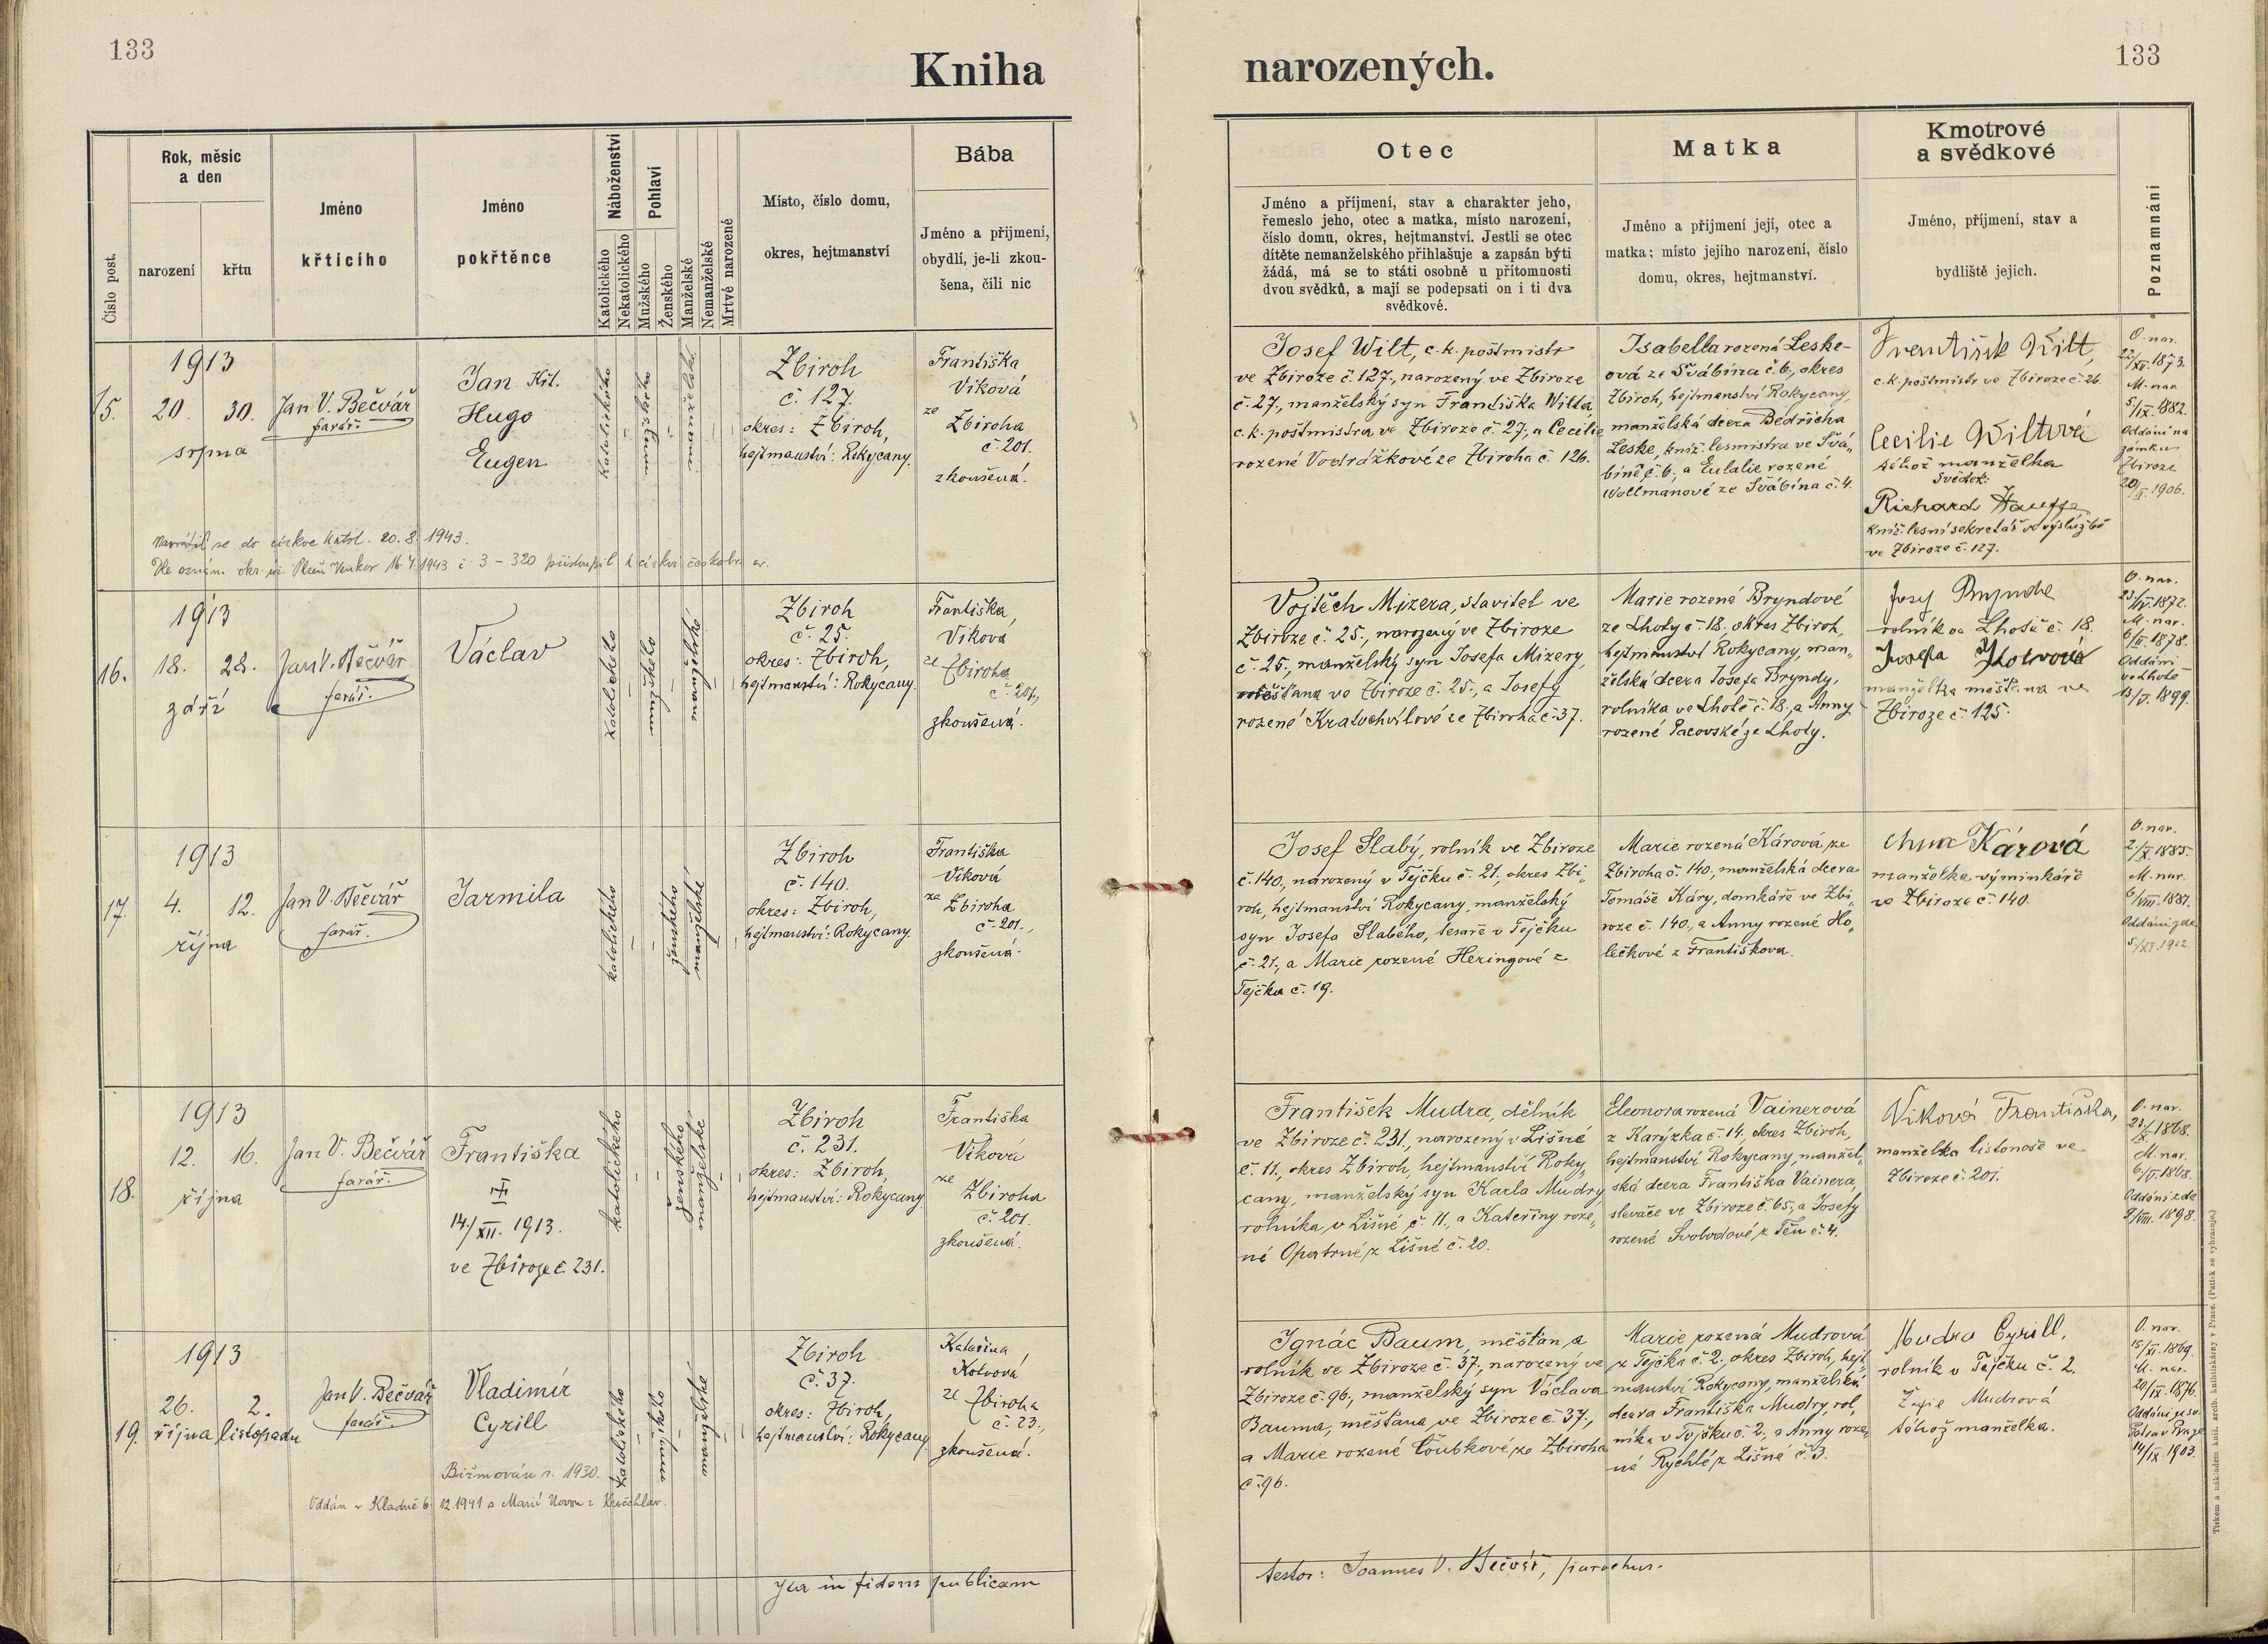 133
Kniha
narozených.
133
Číslo post.
Rok, měsíc
a den
narození
křtu
Jméno
křtícího
Jméno
pokřtěnce
Náboženství
Katolického
Nekatolického
Pohlaví
Mužského
Ženského
Manželské
Nemanželské
Mrtvě narozené
Místo, číslo domu,
okres, hejtmanství
Bába
Jméno a přijmení,
obydlí, je-li zkou-
šena, čili nic
Otec
Jméno a příjmení, stav a charakter jeho,
řemeslo jeho, otec a matka, místo narození,
číslo domu, okres, hejtmanství. Jestli se otec
dítěte nemanželského přihlašuje a zapsán býti
žádá, má se to státi osobně u přítomnosti
dvou svědků, a mají se podepsati on i ti dva
svědkové.
Matka
Jméno a přijmení její, otec a
matka; místo jejího narození, číslo
domu, okres, hejtmanství.
Kmotrové
a svědkové
Jméno, příjmení, stav a
bydliště jejich.
Poznamnání
15.
1913
20. 30.
srpna
Jan V. Bečvář
farář.
Jan Kř.
Hugo
Eugen
katolického
mužského
manželské
Zbiroh
č. 127.
okres: Zbiroh,
hejtmanství: Rokycany.
Františka
Viková
ze Zbiroha
č. 201.
zkoušená.
Josef Wilt, c. k. poštmistr
ve Zbiroze č. 127., narozený ve Zbiroze
č. 27., manželský syn Františka Wilta,
c. k. poštmistra ve Zbiroze č. 27, a Cecilie
rozené Vodrážkové ze Zbiroha č. 126.
Isabella rozená Leske-
ová ze Švábína č. 6, okres
Zbiroh, hejtmanství Rokycany,
manželská dcera Bedřicha
Leske, kníž. lesmistra ve Švá-
bíně č. 6, a Eulalie rozené
Wollmanové ze Švábína č. 4.
František Wilt,
c. k. poštmistr ve Zbiroze č. 26.
Cecilie Wiltová
téhož manželka
Svědek:
Richard
kníž. lesní sekretář ve výslužbě
ve Zbiroze č. 127.
O. nar.
22/XI. 1873.
M. nar.
5/IX. 1882.
Oddáni na
zámku
Zbiroze
20/ 1906.
Navrátil se do církve katol. 20. 8. 1943.
Dle oznám. okr. úř. Plzeň Venkov 16. 4. 1943 č. 3 - 320 přistoupil k církvi českobr. ev.
16.
1913
18. 28.
září
Jan V. Bečvář
farář.
Václav
katolického
mužského
manželské
Zbiroh
č. 25.
okres: Zbiroh,
hejtmanství: Rokycany.
Františka
Viková
ze Zbiroha
č. 201,
zkoušená.
Vojtěch Mizera, stavitel ve
Zbiroze č. 25., narozený ve Zbiroze
č. 25, manželský syn Josefa Mizery,
měšťana ve Zbiroze č. 25., a Josefy
rozené Kratochvílové ze Zbiroha č. 37.
Marie rozené Bryndové
ze Lhoty č. 18, okres Zbiroh,
hejtmanství Rokycany, man-
želská dcera Josefa Bryndy,
rolníka ve Lhotě č. 18, a Anny
rozené Pacovské ze Lhoty.
Josef Brynda
rolník ve Lhotě č. 18.
Josefa Kotvová
manželka měšťana ve
Zbiroze č. 125.
O. nar.
23/IV. 1872.
M. nar.
6/II. 1878.
Oddáni
ve Lhotě
13/V. 1899.
17.
1913
4. 12.
října
Jan V. Bečvář
farář.
Jarmila
katolického
ženského
manželské
Zbiroh
č. 140.
okres: Zbiroh,
hejtmanství: Rokycany
Františka
Viková
ze Zbiroha
č. 201.,
zkoušená.
Josef Slabý, rolník ve Zbiroze
č. 140, narozený v Tejčku č. 21, okres Zbi-
roh, hejtmanství Rokycany, manželský
syn Josefa Slabého, tesaře v Tejčku
č. 21., a Marie rozené Heringové z
Tejčka č. 19.
Marie rozená Kárová ze
Zbiroha č. 140, manželská dcera
Tomáše Káry, domkáře ve Zbi-
roze č. 140, a Anny rozené Ho-
lečkové z Františkova.
Anna Kárová
manželka výminkáře
ve Zbiroze č. 140.
O. nar.
2/X. 1885.
M. nar.
6/VIII. 1887.
Oddáni zde
5/XI. 1912.
18.
1913
12. 16.
října
Jan V. Bečvář
farář.
Františka
14./XII. 1913.
ve Zbiroze č. 231.
katolického
ženského
manželské
Zbiroh
č. 231.
okres: Zbiroh,
hejtmanství: Rokycany
Františka
Viková
ze Zbiroha
č. 201.
zkoušená.
František Mudra, dělník
ve Zbiroze č. 231., narozený v Lišné
č. 11., okres Zbiroh, hejtmanství Roky-
cany, manželský syn Karla Mudry
rolníka v Lišné č. 11., a Kateřiny roze-
né Opatrné z Lišné č. 20.
Eleonora rozená Vainerová
z Karýzka č. 14, okres Zbiroh,
hejtmanství Rokycany, manžel-
ská dcera Františka Vainera,
slevače ve Zbiroze č. 65, a Josefy
rozené Svobodové z Těn č. 4.
Viková Františka,
manželka listonoše ve
Zbiroze č. 201.
O. nar.
1868.
M. nar.
6/V. 1868.
Oddáni zde
9/VIII. 1898.
19.
1913
26. 2.
října listopadu
Jan V. Bečvář
farář.
Vladimír
Cyrill
Biřmován r. 1930.
Oddán v Kladně 6. 12. 1941 s Marií
katolického
mužského
manželské
Zbiroh
č. 37.
okres: Zbiroh,
hejtmanství: Rokycany
Kateřina
Kotvová
ze Zbiroha
č. 23.,
zkoušená.
Ignác Baum, měšťan a
rolník ve Zbiroze č. 37., narozený ve
Zbiroze č. 96, manželský syn Václava
Bauma, měšťana ve Zbiroze č. 37.,
a Marie rozené Čoubkové ze Zbiroha
č. 96.
Marie rozená Mudrová
z Tejčka č. 2, okres Zbiroh, hejt-
manství Rokycany, manželská
dcera Františka Mudry, rol-
níka v Tejčku č. 2, a Anny roze-
né Rychlé z Lišné č. 3.
Mudra Cyrill,
rolník v Tejčku č. 2.
Žofie Mudrová
téhož manželka.
O. nar.
15/XI. 1869.
M. nar.
20/IX. 1876.
Oddáni u sv.
Petra v Praze
14/IX. 1903.
Ita in fidem publicam
testor: Joannes V. Bečvář, parochus.
Tiskem a nákladem kníž. arcib. knihtiskárny v Praze. (Patisk se vyhrazuje.)